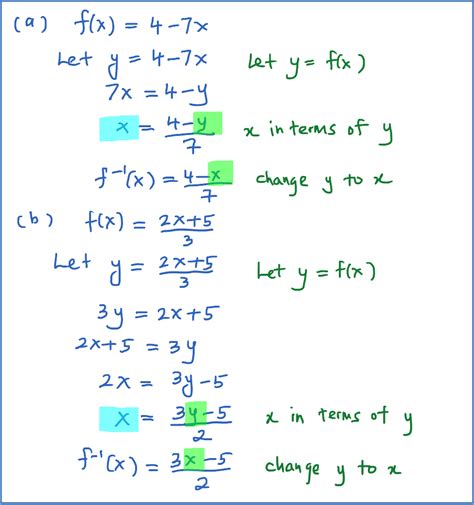 (a) f(x) = 4-7x
Let y = 4-7x Let y = f(x)
7x = 4-y
x = 4-y/7 x in terms of y
f⁻¹(x) = 4-x/7 change y to x
(b) f(x) = 2x+5/3
Let y = 2x+5/3 Let y = f(x)
3y = 2x+5
2x+5 = 3y
2x = 3y-5
x = 3y-5/2 x in terms of y
f⁻¹(x) = 3x-5/2 change y to x